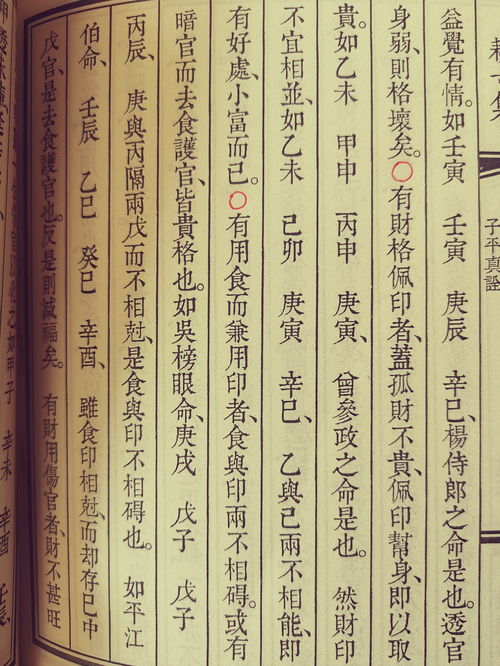 耕寸集
子平真詮
益覺有情。如壬寅 壬寅 庚辰 辛巳、楊侍郎之命是也。透官
身弱、則格壞矣。○有財格佩印者、蓋孤財不貴、佩印幫身、即以取
貴。如乙未 甲申 丙申 庚寅、曾參政之命是也。 然財印
不宜相並、如乙未 己卯 庚寅 辛巳、乙與己兩不相能、即
有好處、小富而已。○有用食而兼用印者、食與印兩不相碍。或有
暗官而去食護官、皆貴格也。如吳榜眼命、庚戌 戊子 戊子
丙辰、庚與丙隔兩戊而不相尅、是食與印不相碍也。 如平江
伯命、壬辰 乙巳 癸巳 辛酉、雖食印相尅、而却存巳中
戊官、是去食護官也。反是則減福矣。 有財用傷官者、財不甚旺
如甲子 辛未 辛酉 壬辰、